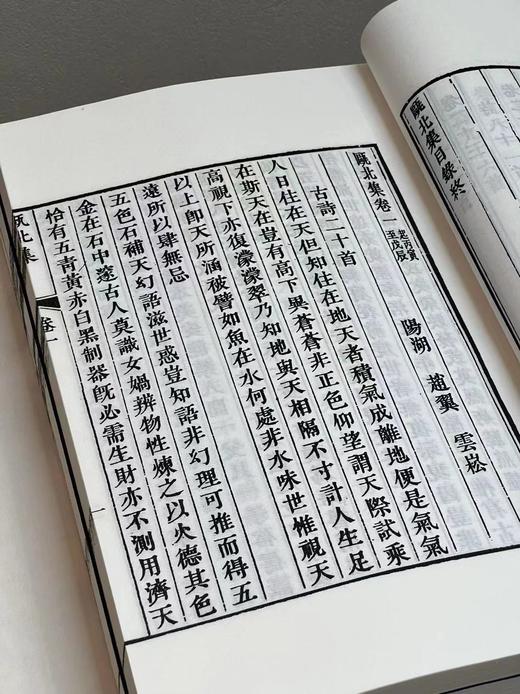 甌北集目錄終
甌北集卷一
起丙寅
至戊辰
陽湖 趙翼 雲崧
古詩二十首
人日住在天但知住在地天者積氣成離地便是氣氣
在斯天在豈有高下異蒼蒼非正色仰望謂天際試乘
高視下亦復濛濛翠乃知地與天相隔不寸計人生足
以上卽天所涵被譬如魚在水何處非水味世惟視天
遠所以肆無忌
五色石補天幻語滋世惑豈知語非幻理可推而得五
金在石中邃古人莫識女媧辨物性煉之以火德其色
恰有五靑黃赤白黑制器旣必需生財亦不測用濟天
甌北集
卷一
一